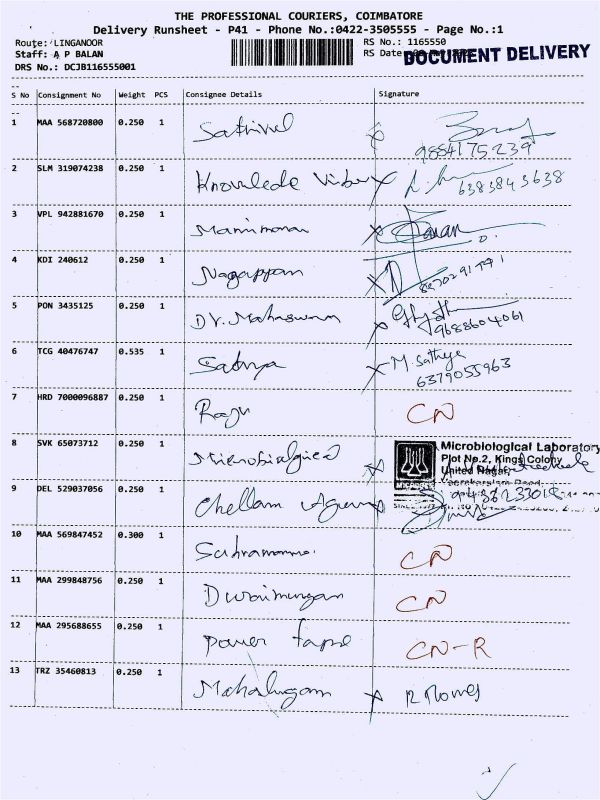 THE PROFESSIONAL COURIERS, COIMBATORE
Delivery Runsheet - P41 - Phone No.:0422-3505555 - Page No.:1
Route: LINGANOOR RS No.: 1165550
Staff: A P BALAN RS Date: DOCUMENT DELIVERY
DRS No.: DCJB116555001
S No Consignment No Weight PCS Consignee Details Signature
1 MAA 568720800 0.250 1 Sathivel
9884175239
2 SLM 319074238 0.250 1 Knowlede
6383843638
3 VPL 942881670 0.250 1
4 KDI 240612 0.250 1 Nagappan
5 PON 3435125 0.250 1 Dr. Mahaswam
9688604061
6 TCG 40476747 0.535 1 Sathya M. Sathya
6379055963
7 HRD 7000096887 0.250 1 Raju CN
8 SVK 65073712 0.250 1 Microbiological Laboratory
Plot No.2, Kings Colony
United Nagar,
9 DEL 529037056 0.250 1 Chellam
10 MAA 569847452 0.300 1 CN
11 MAA 299848756 0.250 1 Duraimurugan CN
12 MAA 295688655 0.250 1 Power CN-R
13 TRZ 35460813 0.250 1 Mahalingam